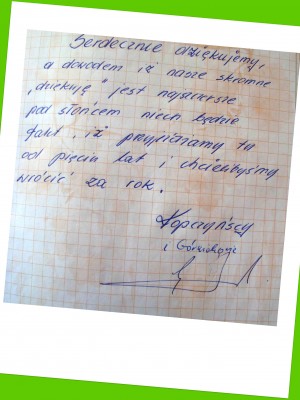 Serdecznie dziękujemy,
a dowodem iż nasze skromne
„dziękuję” jest najszczersze
pod słońcem niech będzie
fakt, iż przyjeżdżamy tu
od pięciu lat i chcielibyśmy
wrócić za rok.
Kopczyńscy
i